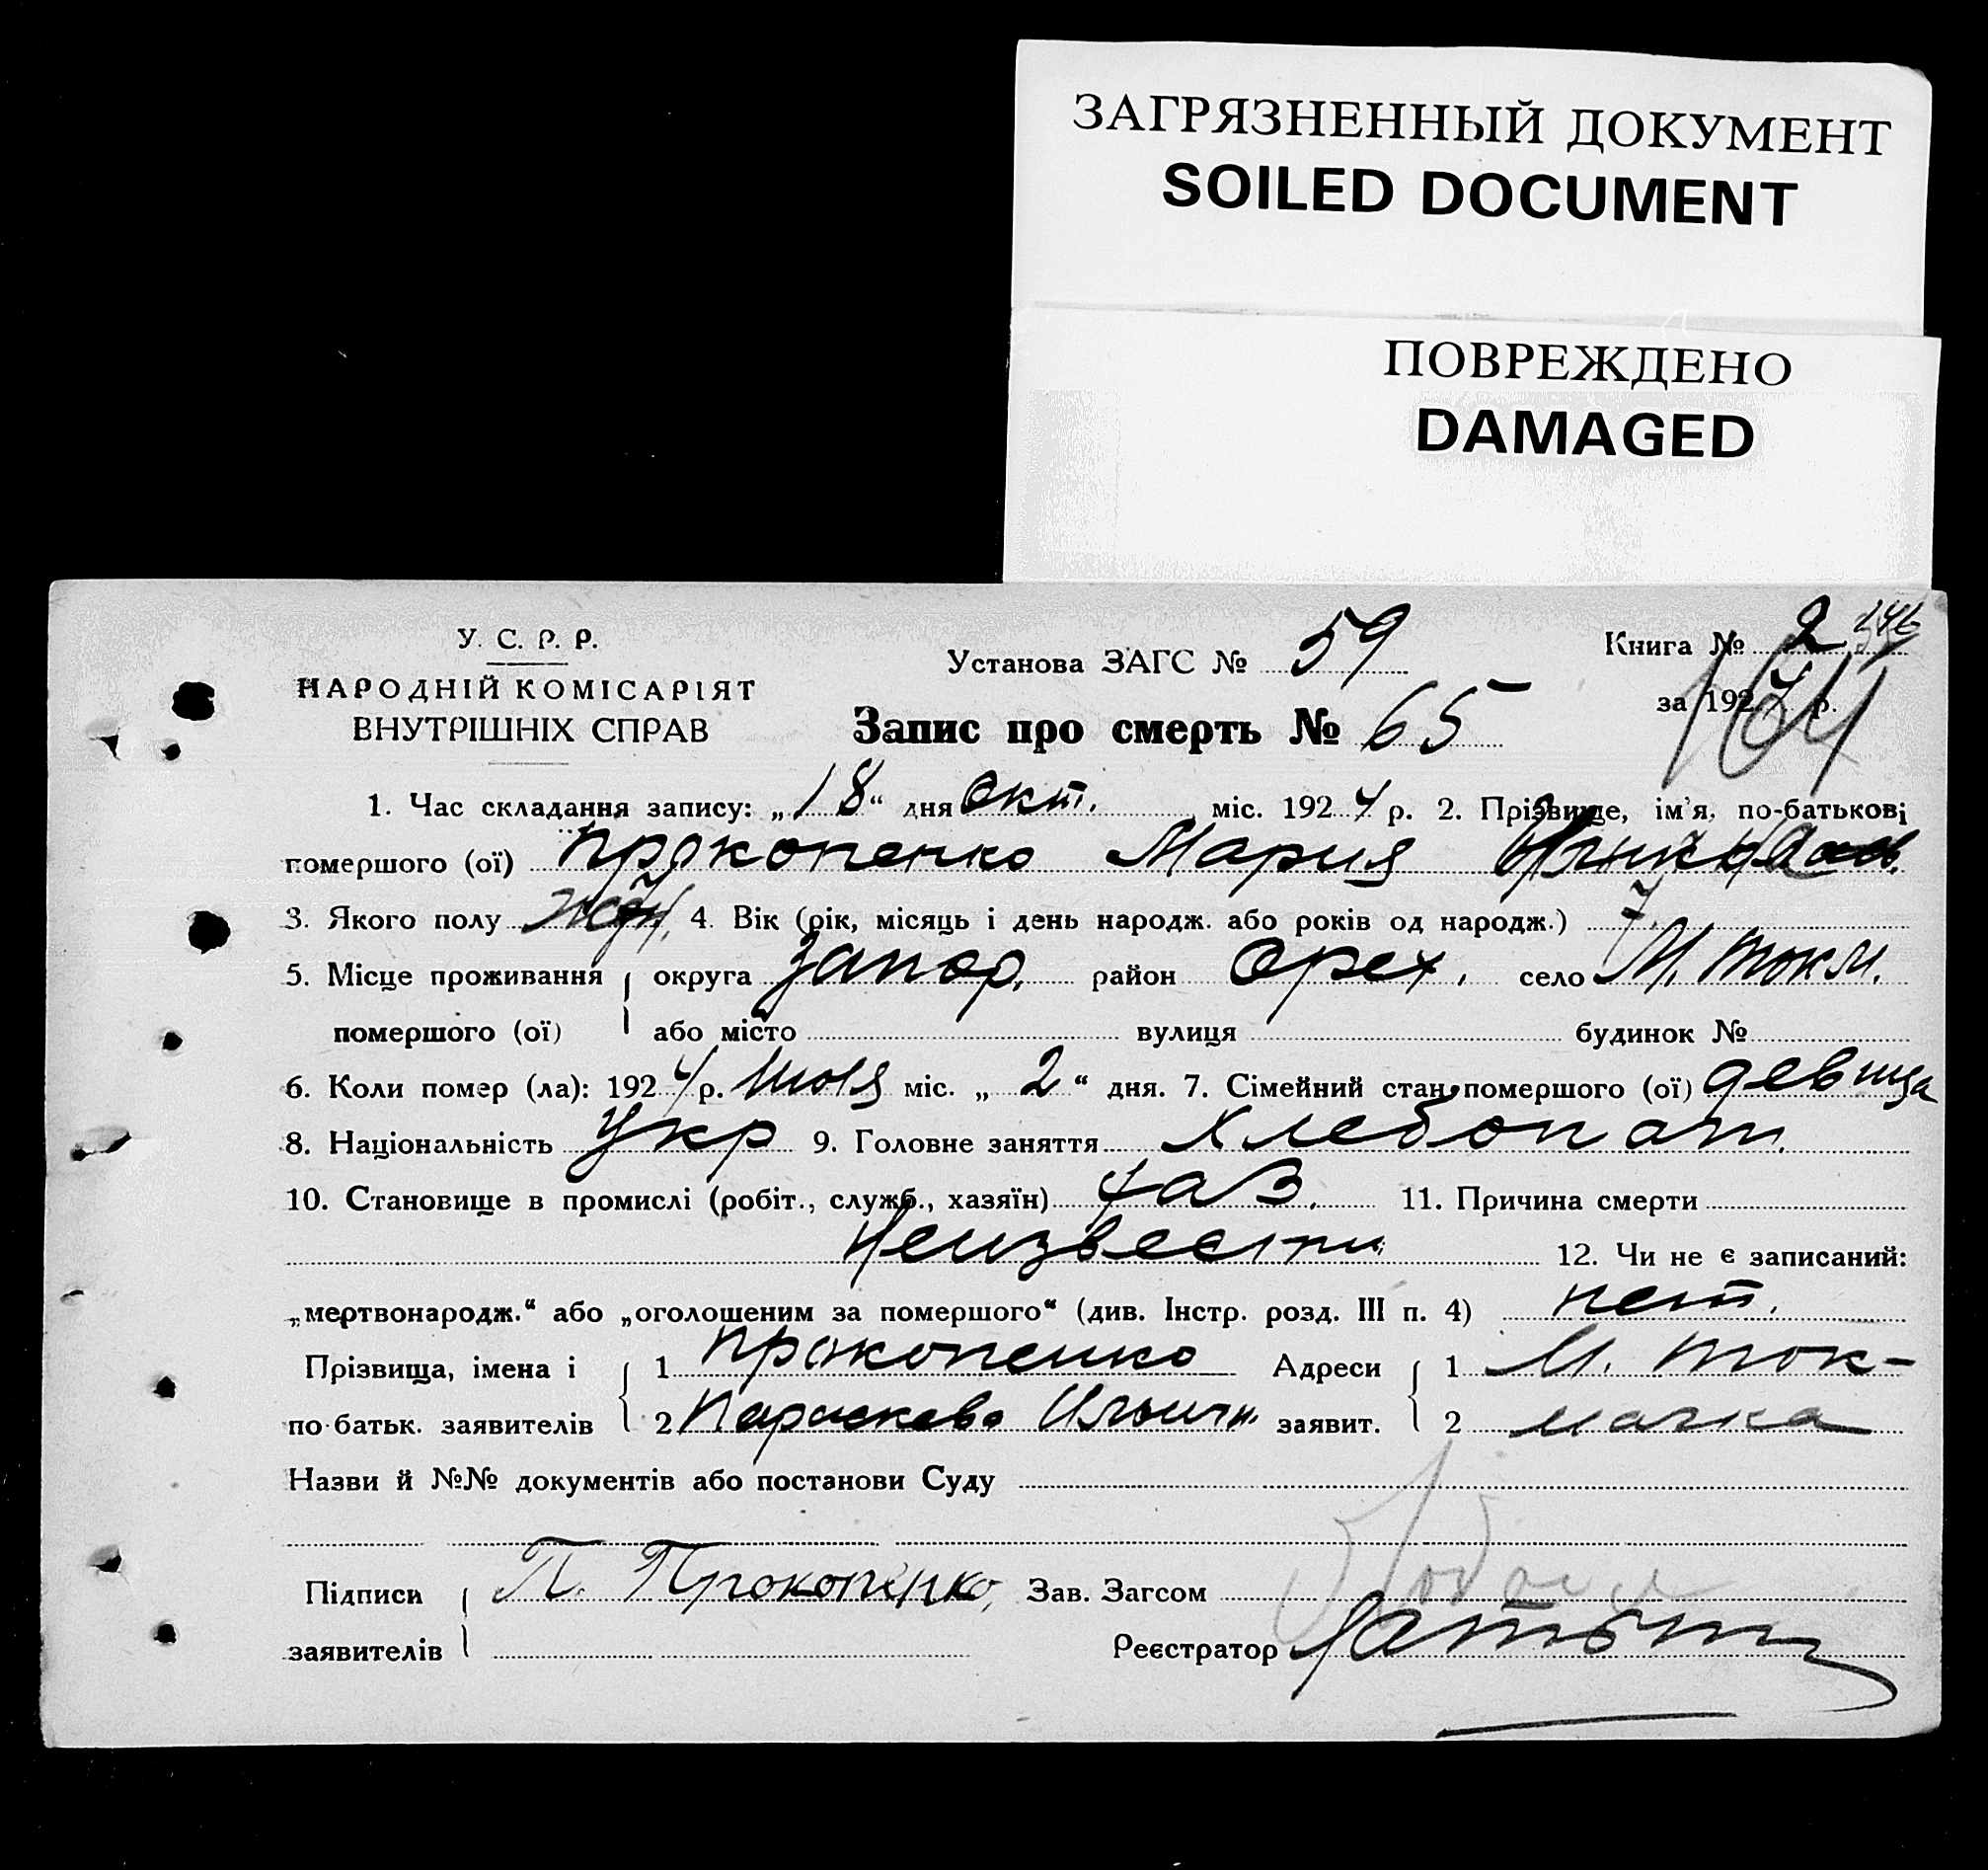 ЗАГРЯЗНЕННЫЙ ДОКУМЕНТ
SOILED DOCUMENT
ПОВРЕЖДЕНО
DAMAGED
У. С. Р. Р.
НАРОДНІЙ КОМІСАРІЯТ
ВНУТРІШНІХ СПРАВ
Установа ЗАГС № 59
Книга № 2 146
за 192 р.
Запис про смерть № 65
1. Час складання запису: „18“ дня окт. міс. 1924 р. 2. Прізвище, ім'я, по-батькові
помершого (ої) Прокопенко Мария
3. Якого полу жен. 4. Вік (рік, місяць і день народж. або років од народж.) 7.
5. Місце проживання округа Запор. район Орех. село М. Токм.
помершого (ої) або місто вулиця будинок №
6. Коли помер (ла): 1924 р. июля міс. „2“ дня. 7. Сімейний стан помершого (ої) девица
8. Національність Укр 9. Головне заняття Хлебопаш.
10. Становище в промислі (робіт., служб., хазяїн) хаз. 11. Причина смерти
Неизвестн. 12. Чи не є записаний:
„мертвонародж.“ або „оголошеним за помершого“ (див. Інстр. розд. III п. 4) нет.
Прізвища, імена і 1 Прокопенко Адреси 1 М. Ток-
по-батьк. заявителів 2 Параскева Ильин. заявит. 2 мачка
Назви й №№ документів або постанови Суду
Підписи П. Прокопенко, Зав. Загсом
заявителів Реєстратор